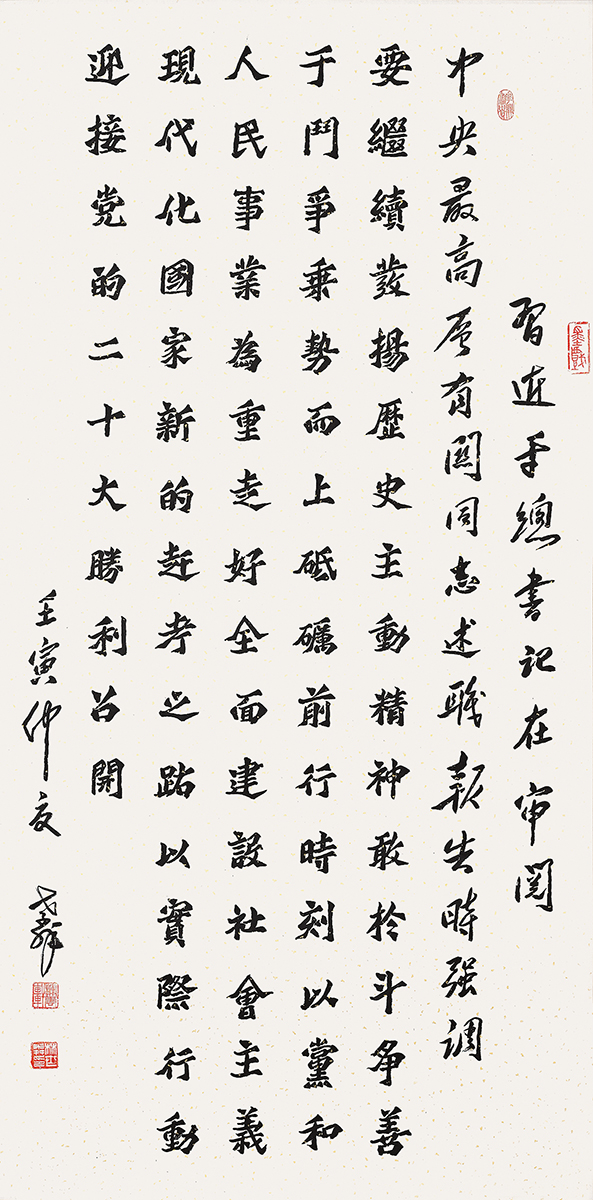 習近平總書記在审閱
中央最高层有関同志述職報告時强调
要繼續發揚歷史主動精神敢於斗爭善
于鬥爭乘勢而上砥礪前行時刻以黨和
人民事業為重走好全面建設社會主義
現代化國家新的赶考之路以實際行動
迎接党的二十大勝利召開
壬寅仲夏